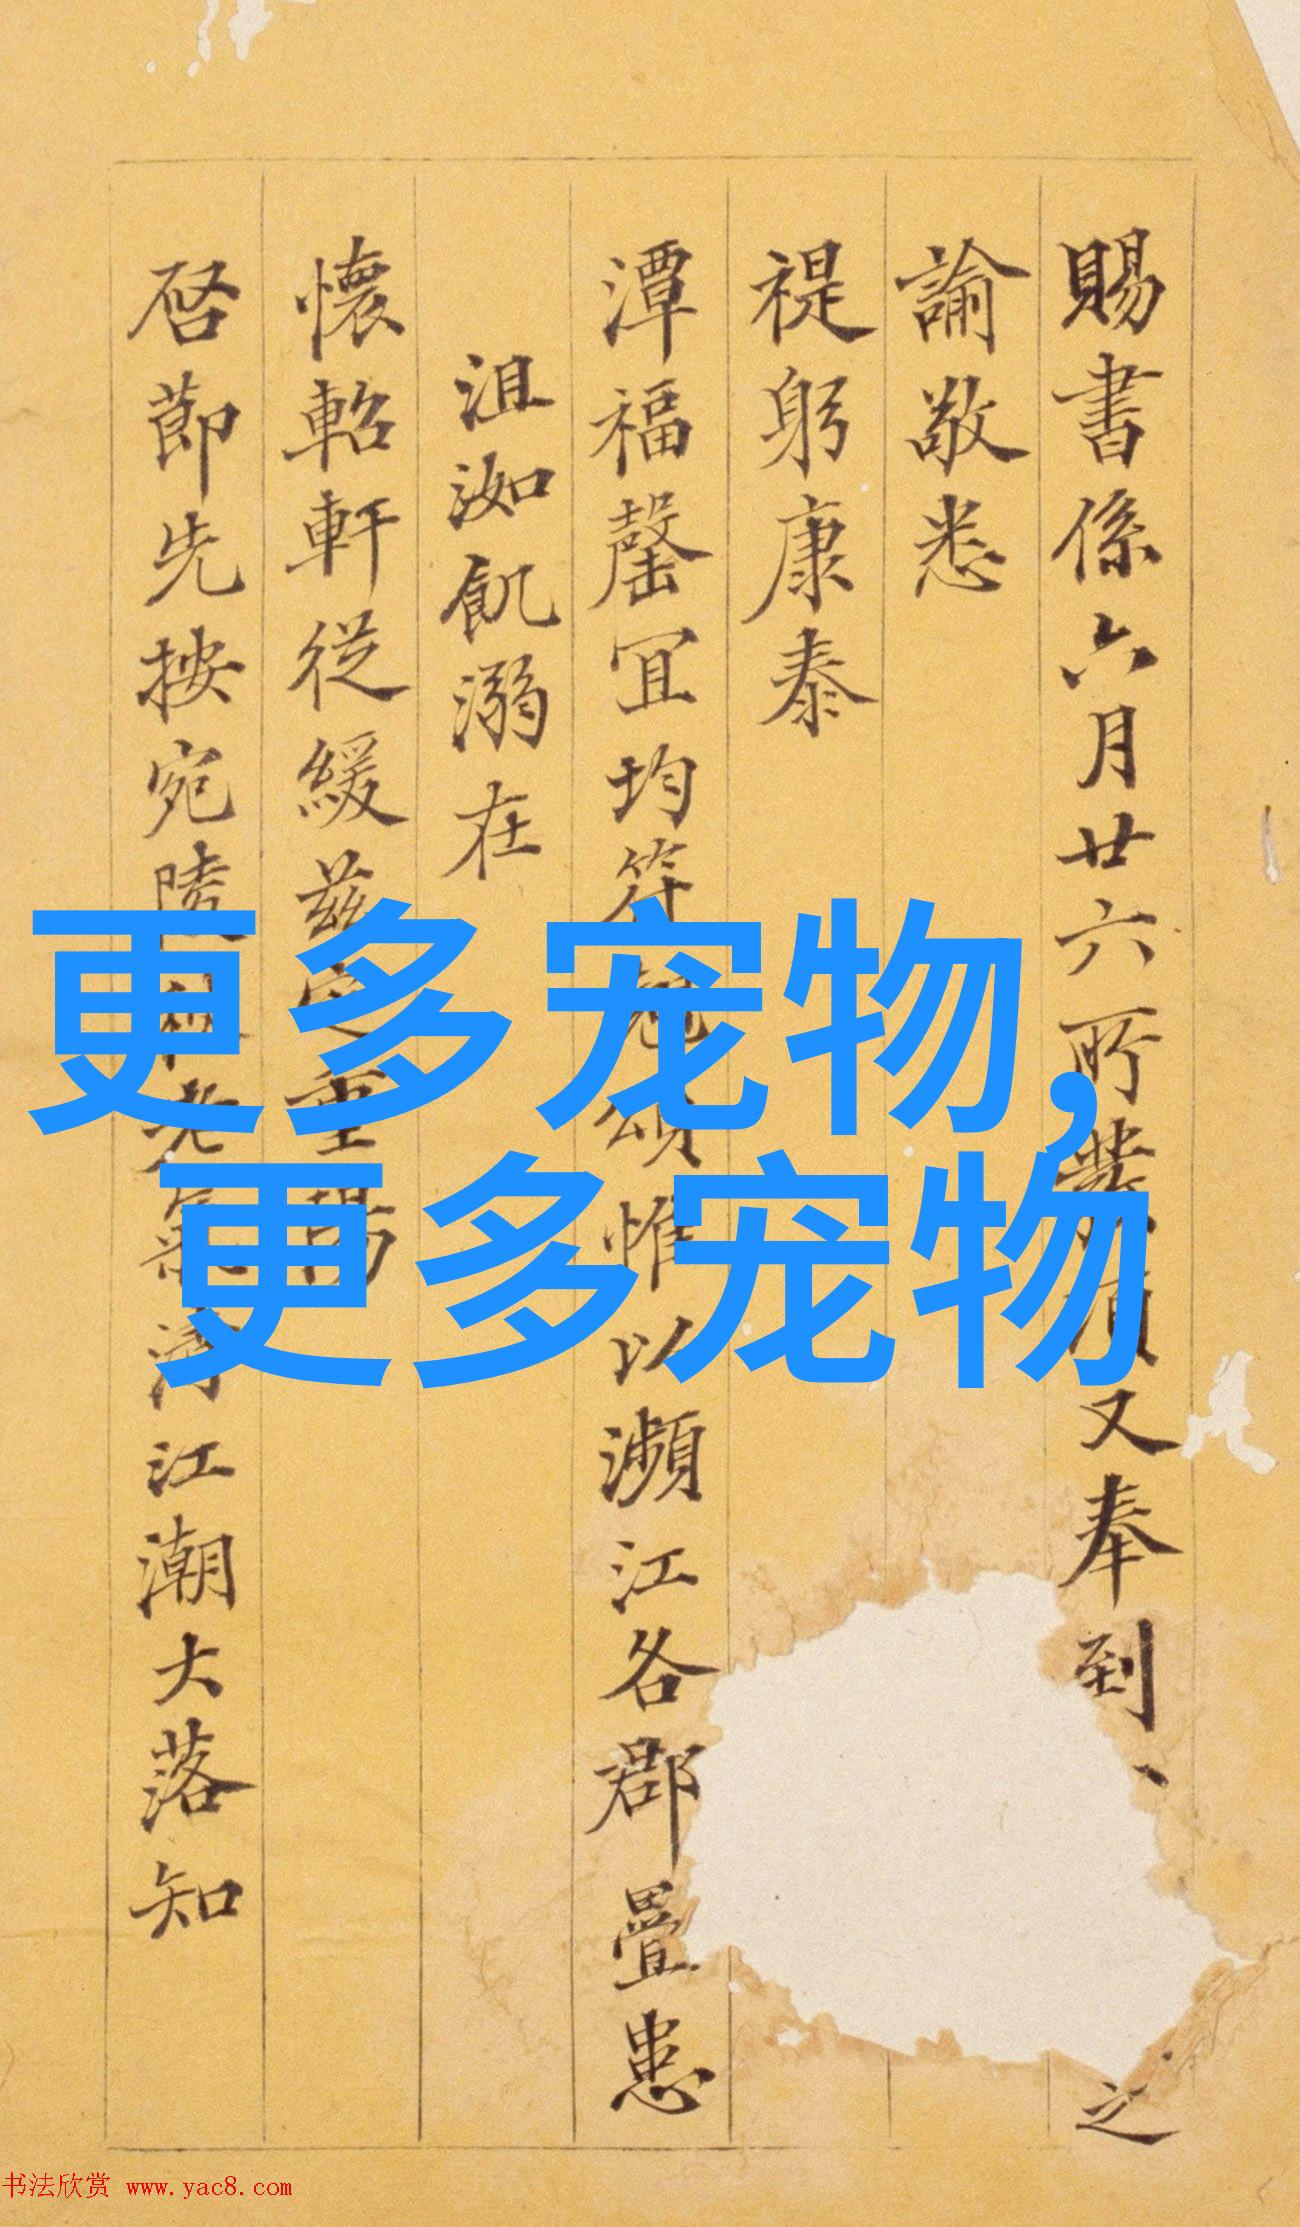 賜書係六月廿六所又奉到、之
諭敬悉
禔躬康泰
潭福罄宜均符頌惟以瀕江各郡疊患
沮洳飢溺在
懷軺軒從緩茲重
啓節先按宛陵江潮大落知
更多宠物,
更多宠物
书法欣赏 www.yac8.com